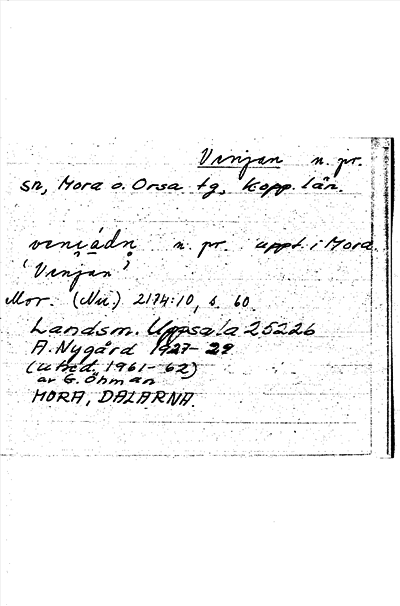 Vinjan n. pr.
sn, Mora o. Orsa tg, Kopp. län.
n. pr. uppt. i Mora.
'Vinjan'
Mor. (Nu.) 2174:10, s. 60.
Landsm. Uppsala 25226
A. Nygård 1927-29
(utred. 1961-62)
av G. Öhman
MORA, DALARNA.